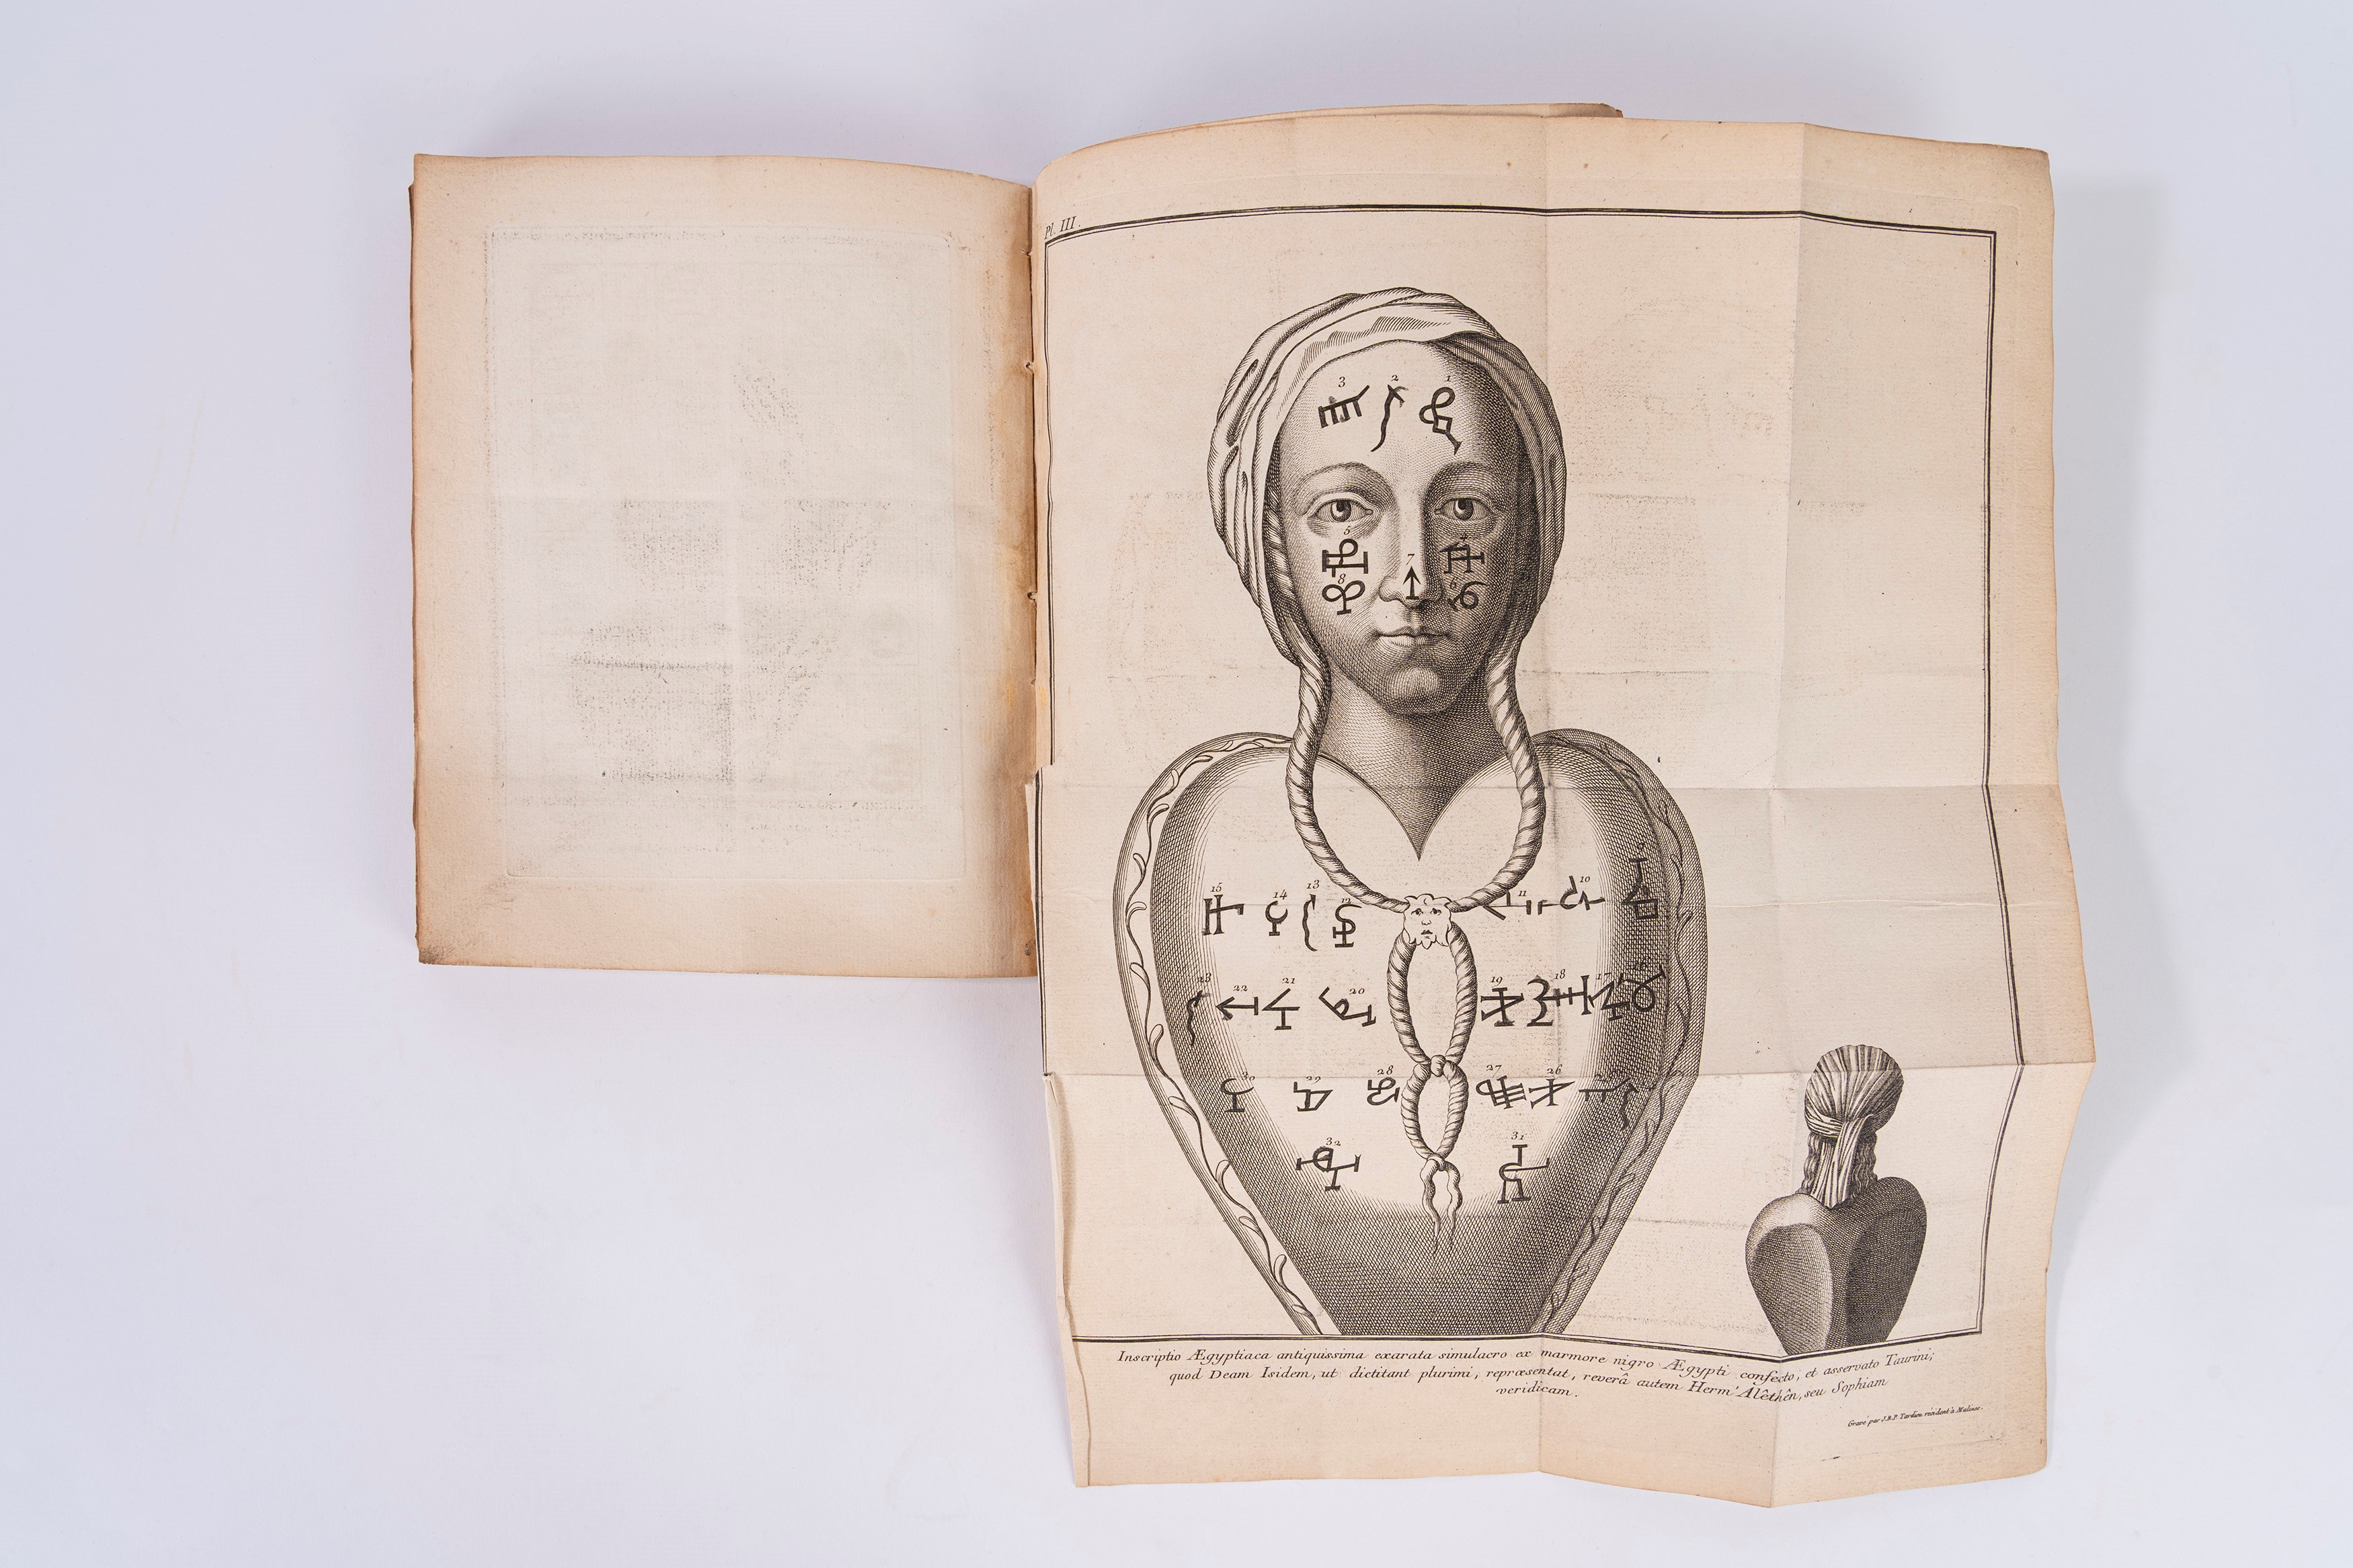 Pl. III.
3 2 1
5
7
8 6
15 14 13 12 11 10 9
23 22 21 20 19 18 17 16
30 29 28 27 26
32 31
Inscriptio Ægyptiaca antiquissima exarata simulacro ex marmore nigro Ægypti confecto, et asservato Taurini;
quod Deam Isidem, ut dictitant plurimi, repræsentat, reverâ autem Herm' Alêthên, seu Sophiam
veridicam.
Gravé par J.B.P. Tardieu résident à Malines.